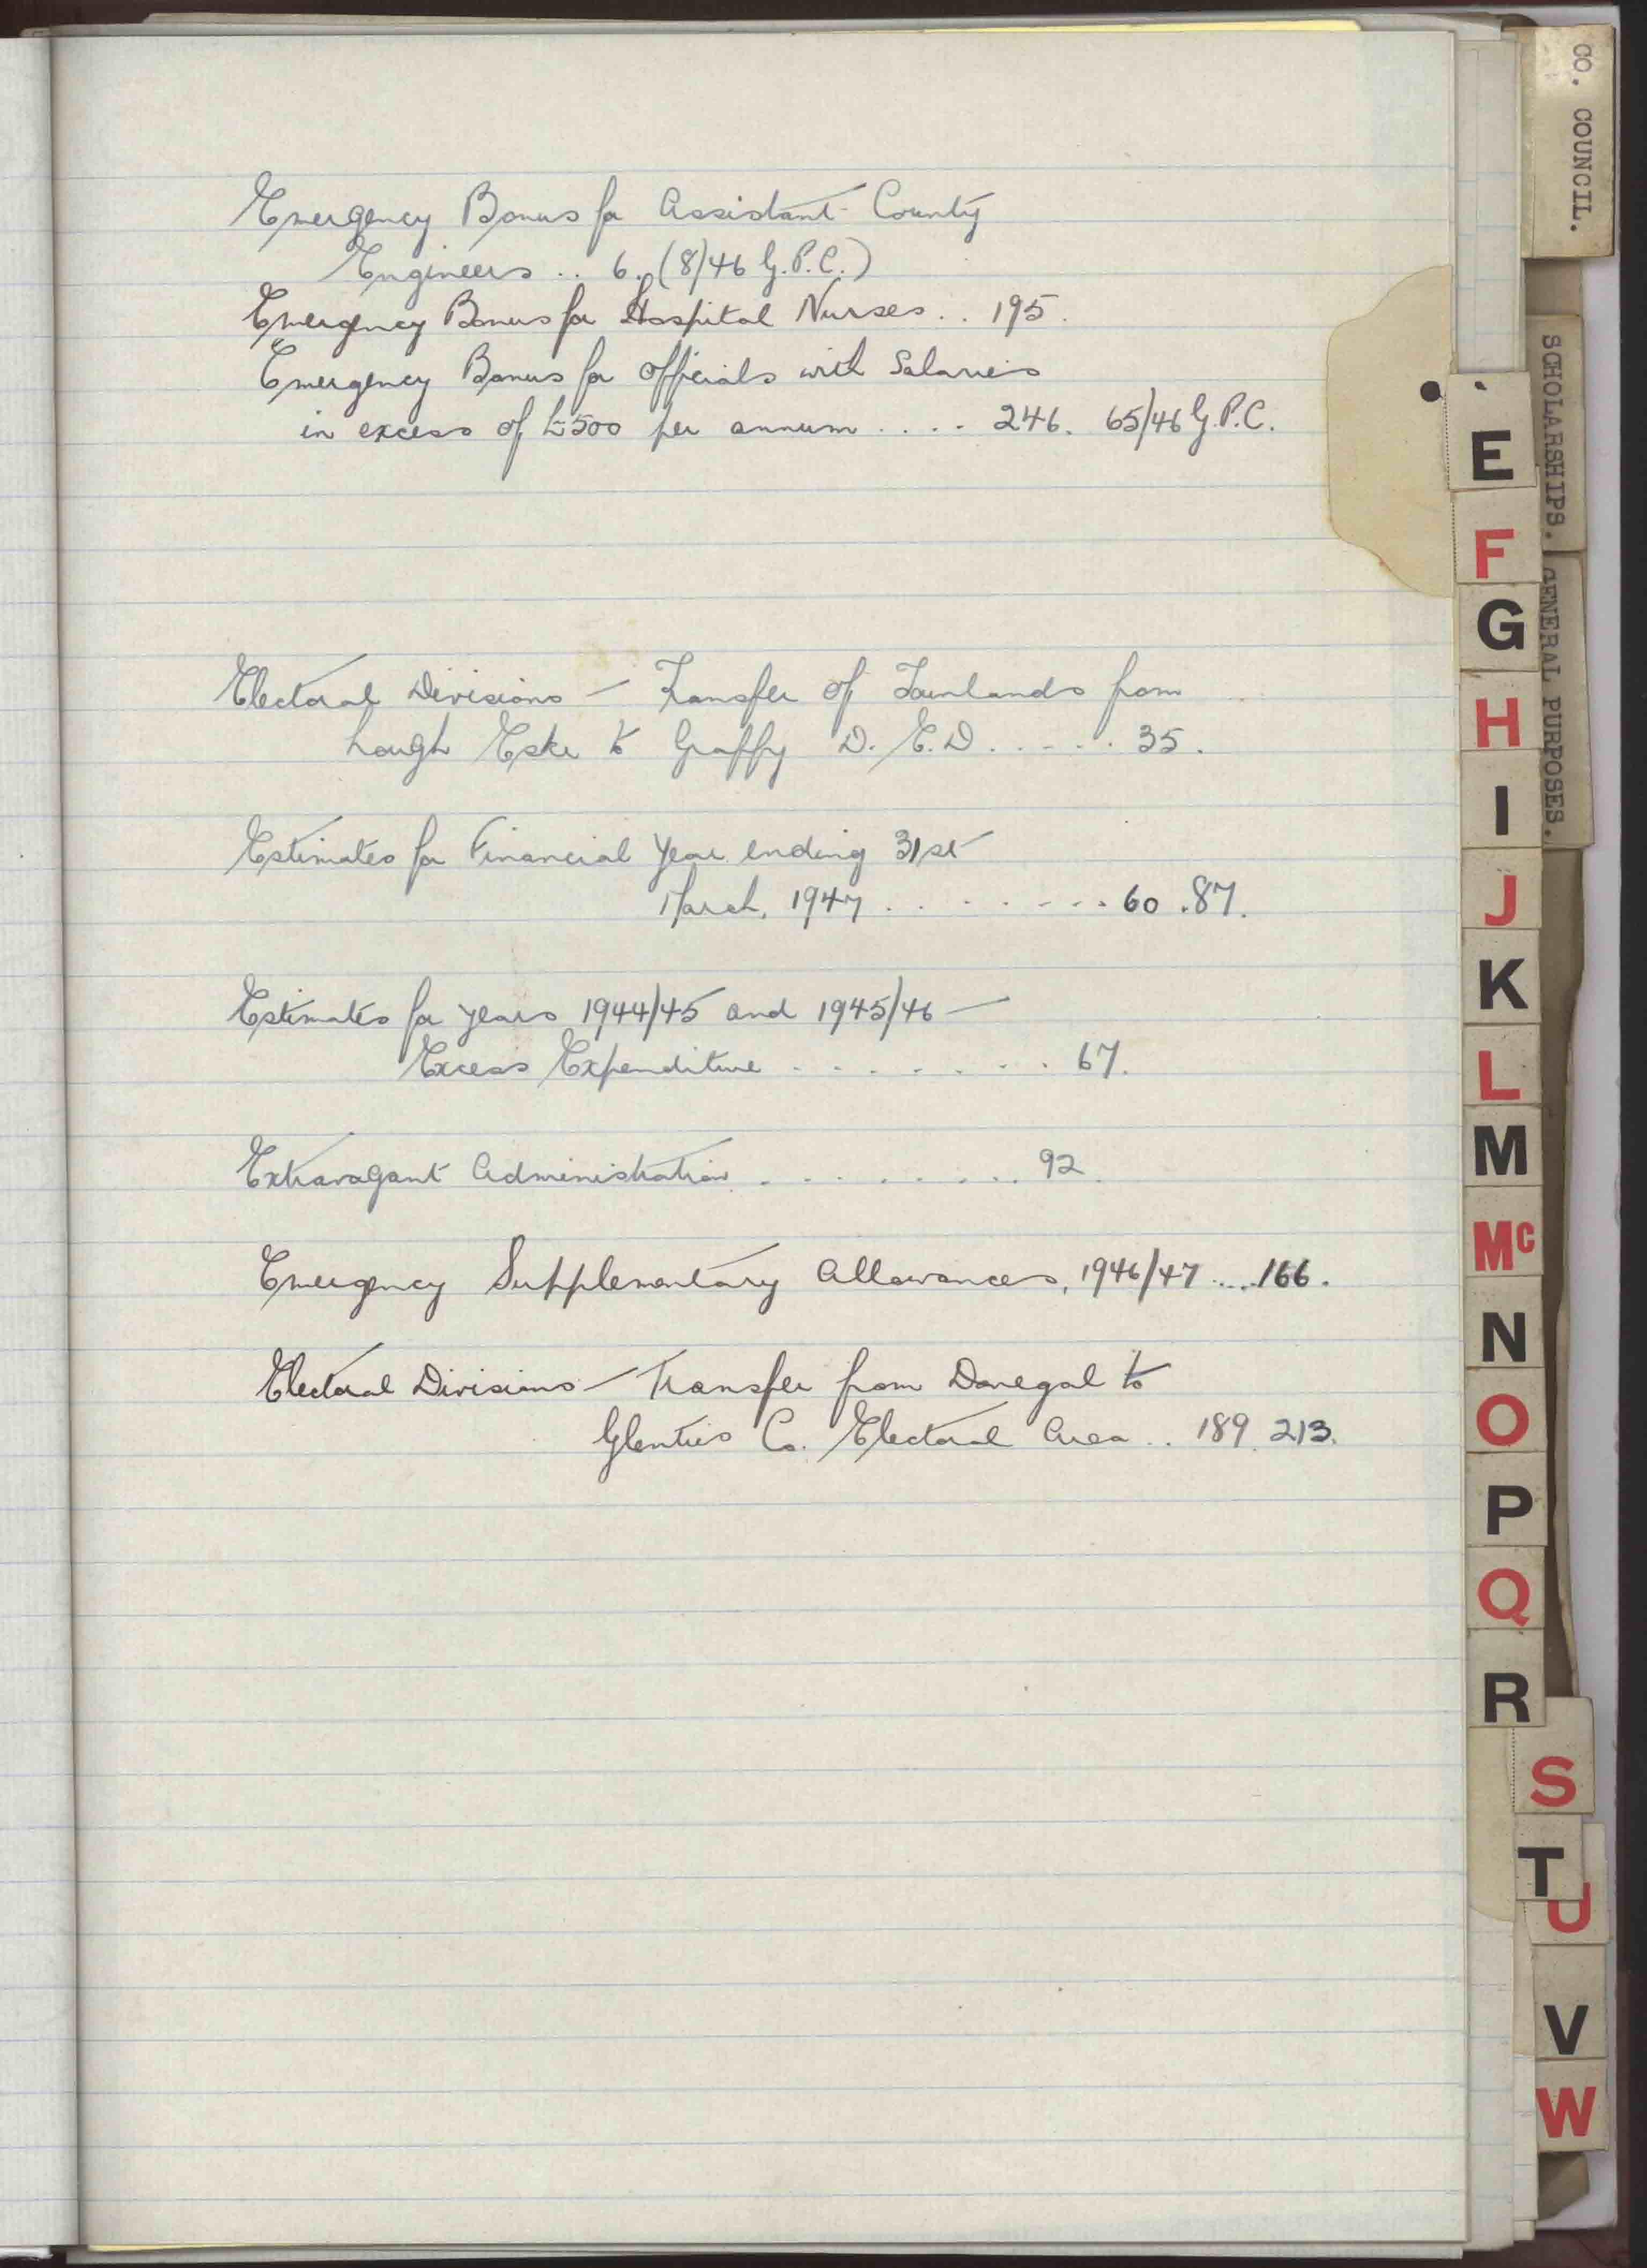 Emergency Bonus for Assistant County
Engineers .. 6. (8/46 G.P.C.)
Emergency Bonus for Hospital Nurses .. 195.
Emergency Bonus for Officials with Salaries
in excess of £500 per annum .... 246. 65/46 G.P.C.
Electoral Divisions – Transfer of Townlands from
Lough Eske to Graffy D.E.D ..... 35.
Estimates for Financial Year ending 31st
March, 1947 ........ 60 .87.
Estimates for years 1944/45 and 1945/46 –
Excess Expenditure ........ 67.
Extravagant Administration ......... 92.
Emergency Supplementary Allowances, 1946/47 .... 166.
Electoral Divisions – Transfer from Donegal to
Glenties Co. Electoral Area .. 189. 213.
CO. COUNCIL.
SCHOLARSHIPS.
GENERAL PURPOSES.
E
F
G
H
I
J
K
L
M
Mc
N
O
P
Q
R
S
T
U
V
W